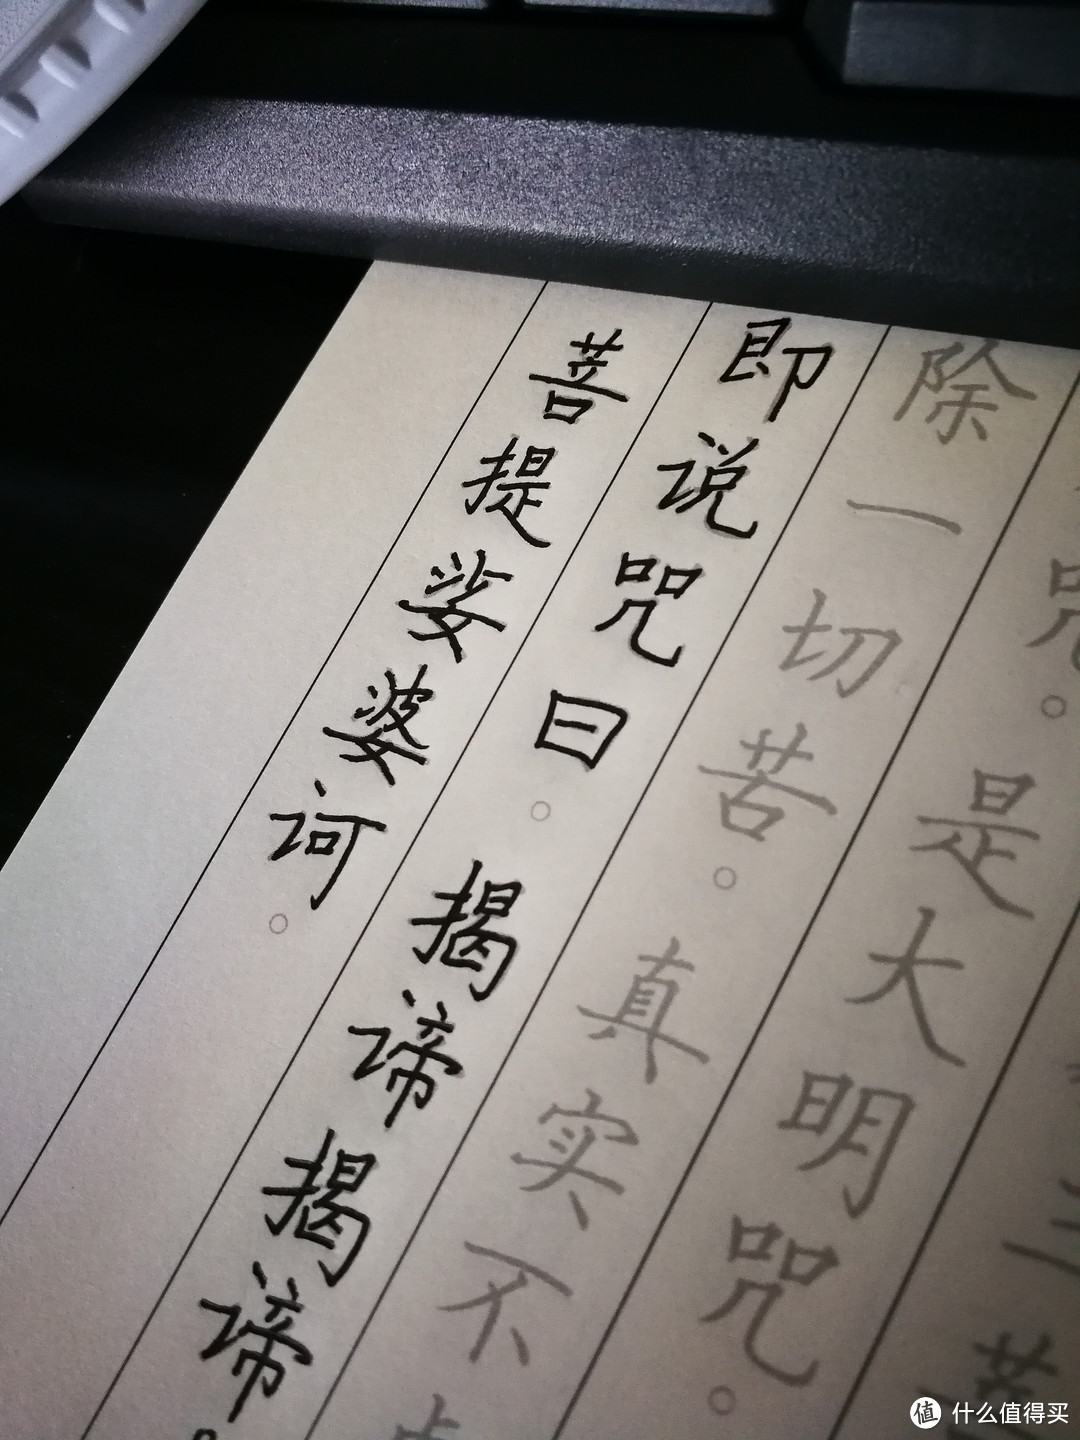 咒。
是大明咒。
除一切苦。真实不
即说咒曰。揭谛揭谛
菩提娑婆诃。
什么值得买